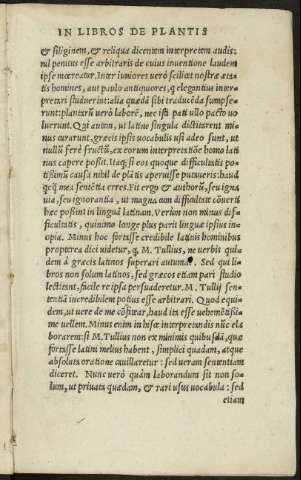 IN LIBROS DE PLANTIS
& siliginem, & reliqua dicentem interpretem audis:
nul penitus esse arbitraris de cuius inuentione laudem
ipse mereatur. Inter iuniores uerò scilicet nostræ æta-
tis homines, aut paulo antiquiores, q̃ elegantius inter-
pretari studuerint: alia quædã sibi traducẽda sumpse-
runt: plantarũ uerò laborẽ, nec isti pati ullo pacto uo
luerunt. Qui autem, ut latine singula dicerent mi-
nus curarunt, græcis ipsis uocabulis usi adeo sunt, ut
nullũ ferè fructũ, ex eorum interpretatiõe homo lati
nus capere possit. Itaq; si eos quoque difficultatis po-
tissimũ causa nihil de plãtis aperuisse putaueris: haud
q̃q̃ mea sentẽtia erres. Fit ergo & authorũ, seu igna
uia, seu ignorantia, ut magna cum difficultate cõuerti
hæc possint in linguã latinam. Verum non minus dif-
ficultatis, quinimo longe plus parit linguæ ipsius in-
opia. Minus hoc fortasse credibile latinis hominibus
propterea dici uidetur, q̃ M. Tullius, ne uerbis quidẽ
dem à græcis latinos superari autumat. Sed qui li-
bros non solum latinos, sed græcos etiam pari studio
lectitent, facile re ipsa persuaderetur, M. Tullij sen-
tentiã incredibilem potius esse arbitrari. Quod equi-
dem, ut uere de me cõfitear, haud ita esse uehemẽtissi-
me uellem. Minus enim in hisce interpretandis nũc ela
borarem: si M. Tullius non ex minimis quibusdã, quæ
fortasse latini melius habent, simplici quadam, atque
absoluta oratione cauillaretur: sed ueram sententiam
diceret. Nunc uerò quàm laborandum sit non so-
lum, ut priuata quædam, & rari usus uocabula: sed
etiam